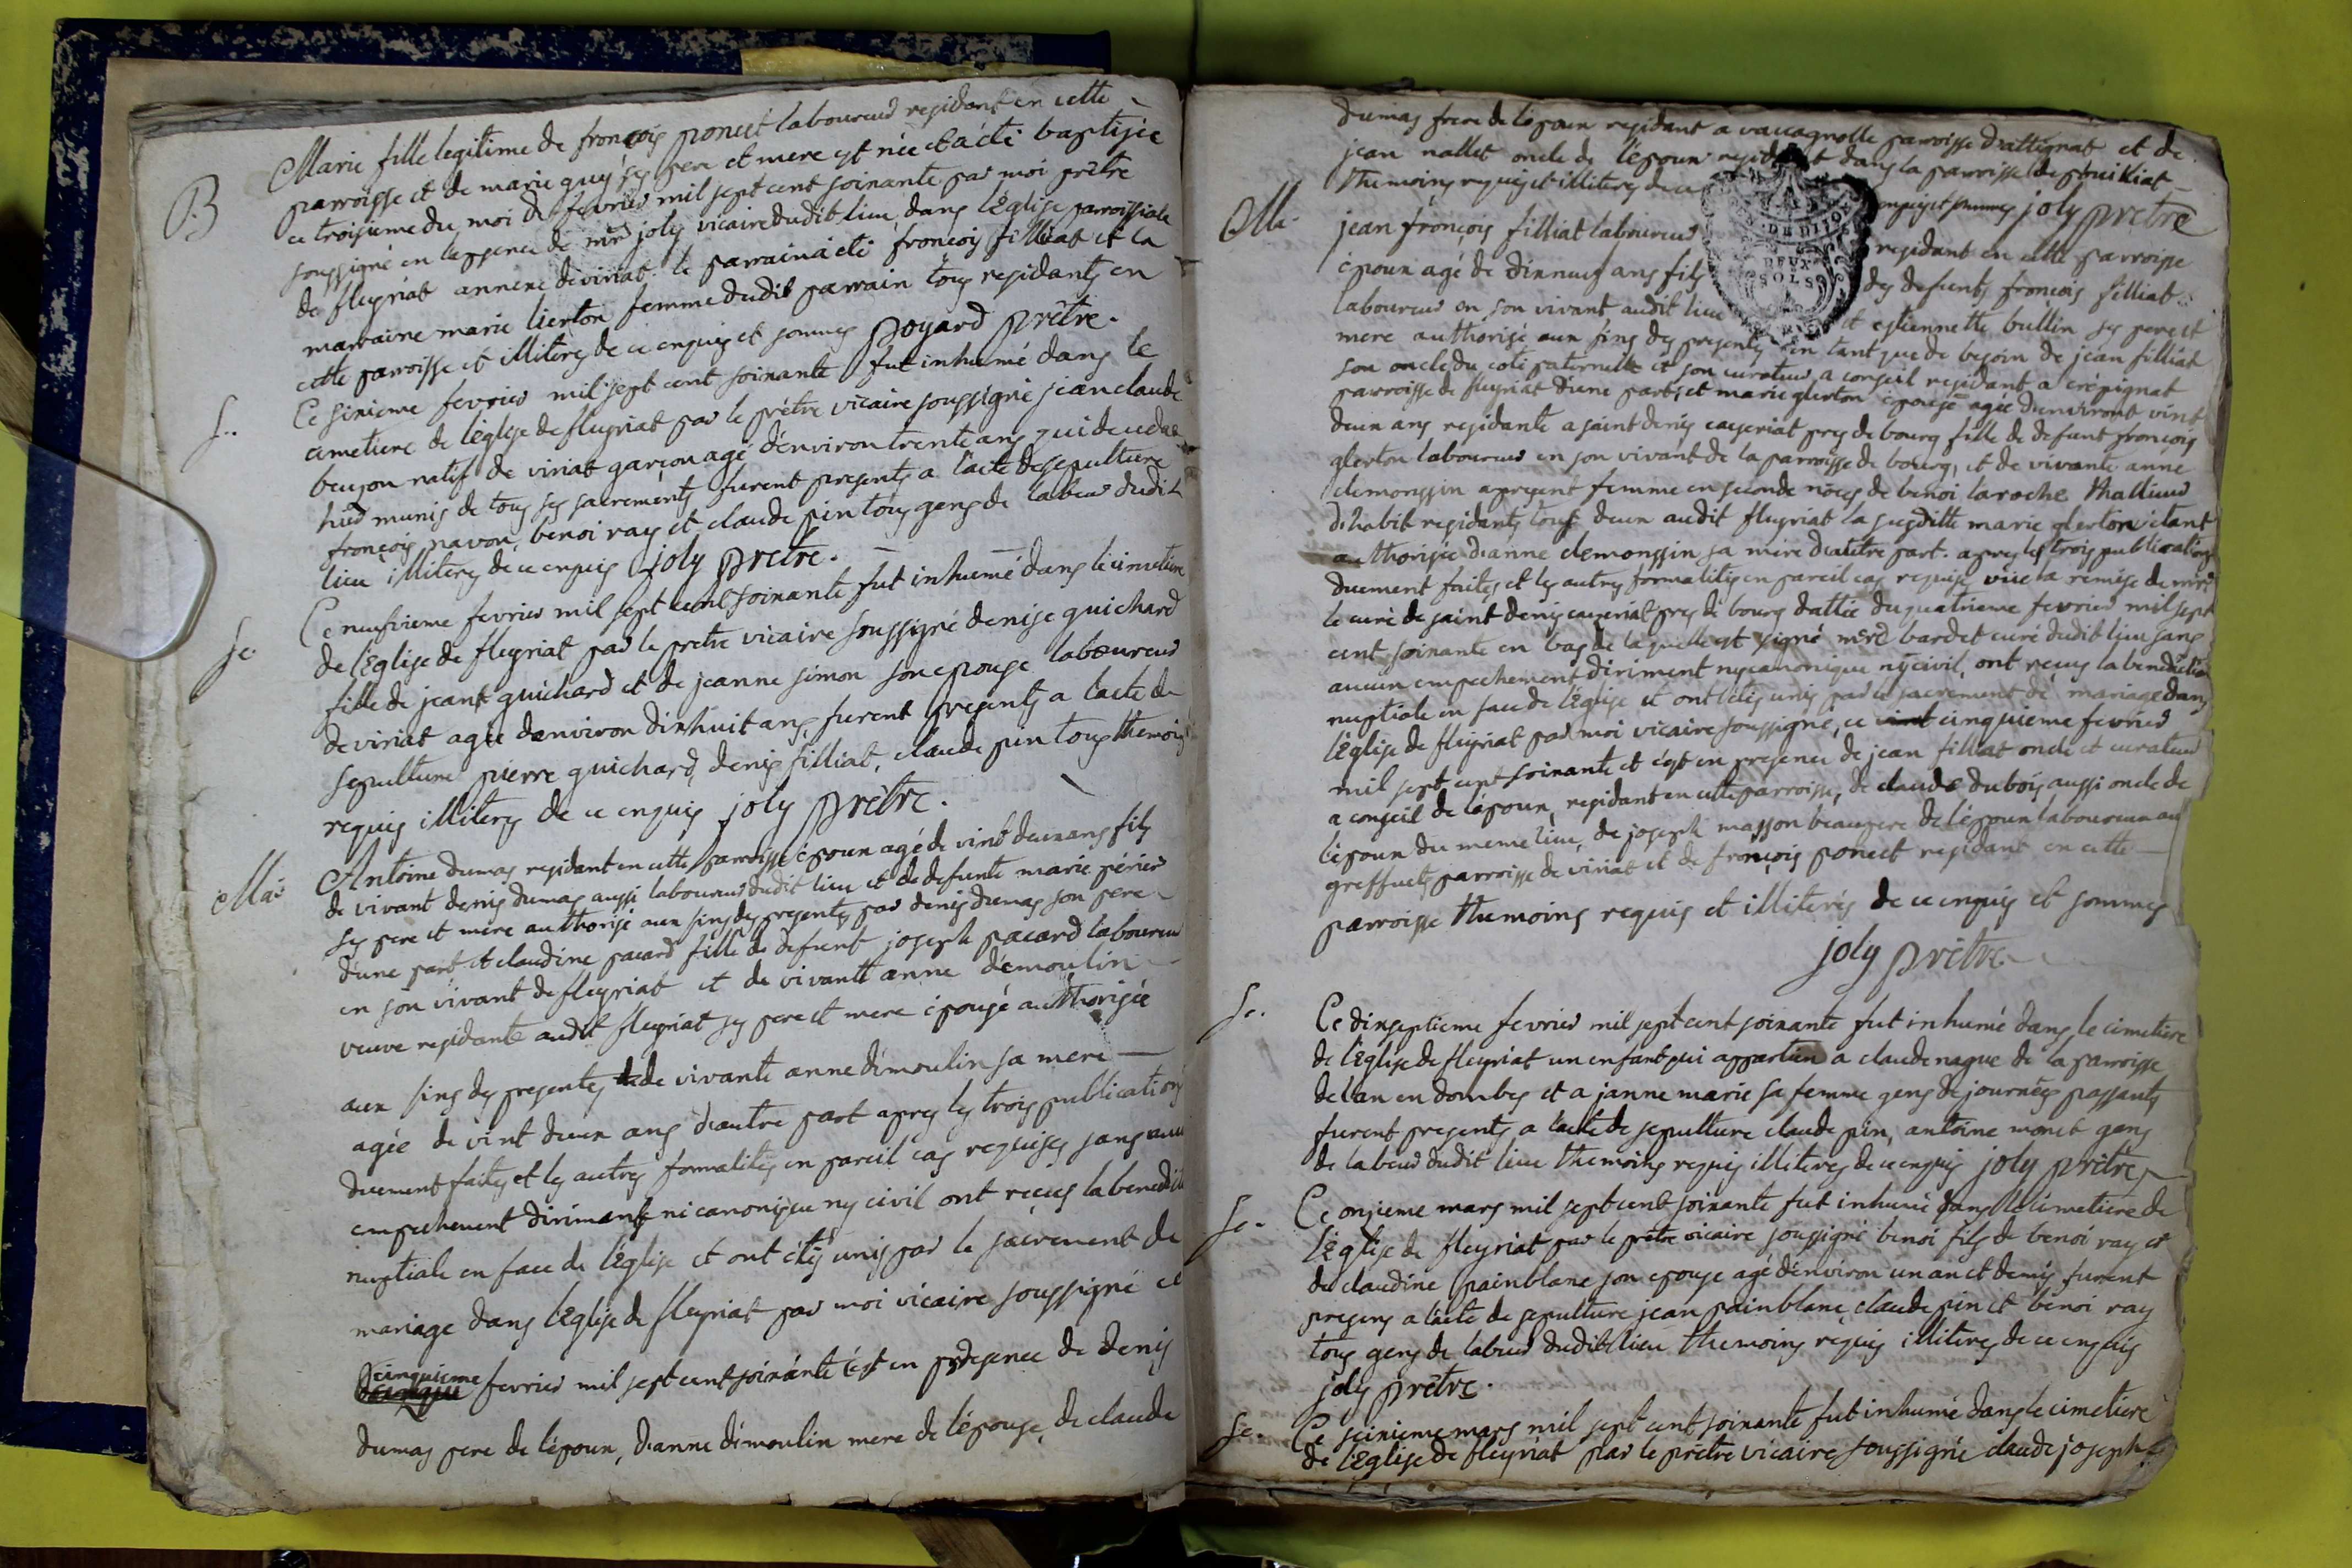 B
Marie fille legitime de françois poncet laboureur residant en cette
parroisse et de marie guy ses pere et mere est née et a été baptisée
ce troisieme du moi de fevrier mil sept cent soixante par moi prêtre
soussigné en l'absence de mre joly vicaire dudit lieu dans l'Eglise parroissiale
de fleyriat annexe de viriat. le parrain a été françois filliat et la
marraine marie lierton femme dudit parrain tous residants en
cette parroisse et illiterés de ce enquis et sommés poyard prêtre.
S..
Ce sixieme fevrier mil sept cent soixante fut inhumé dans le
cimetiere de l'église de fleyriat par le prêtre vicaire soussigné jean claude
beujon natif de viriat garçon agé d'environ trente ans qui deceda
hier munis de tous ses sacrements furent presents a l'acte de sepulture
françois navon, benoi ray et claude pin tous gens de labeur dudit
lieu illiterés de ce enquis joly prêtre.
Se.
Ce neufvieme fevrier mil sept cent soixante fut inhumé dans le cimetiere
de l'Eglise de fleyriat par le prêtre vicaire soussigné denise guichard
fille de jeant guichard et de jeanne simon son epouse laboureur
de viriat agée d'environ dixhuit ans, furent presents a l'acte de
sepulture pierre guichard, denis filliat, claude pin tous themoins
requis illiterés de ce enquis joly prêtre.
Ma:
Antoine dumas residant en cette parroisse époux agé de vint deux ans fils
de vivant denis dumas aussi laboureur dudit lieu et de defunte marie périer
ses pere et mere authorisé aux fins des presentes par denis dumas son pere
d'une part et claudine pacard fille de defunt joseph pacard laboureur
en son vivant de fleyriat et de vivante anne démoulin
veuve residante audit fleyriat ses pere et mere épouse authorisée
aux fins des presentes de vivante anne démoulin sa mere
agée de vint deux ans d'autre part apres les trois publications
duement faites et les autres formalités en pareil cas requises sans aucun
empechement dirimant ni canonique ny civil ont reçus la benedic
nuptiale en face de l'église et ont étés unis par le sacrement de
mariage dans l'Eglise de fleyriat par moi vicaire soussigné ce
cinquieme fevrier mil sept cent soixante c'est en presence de denis
dumas pere de l'époux, d'anne démoulin mere de l'épouse, de claude
dumas frere de l'époux residant a vacagnolle parroisse d'attignat et de
jean nallet oncle de l'époux residant dans la parroisse de
themoins requis et illiterés de ce enquis et sommés joly prêtre
DE DIJON
DEUX
SOLS
Ma.
jean françois filliat laboureur residant en cette parroisse
époux agé de dixneuf ans fils des defunts françois filliat
laboureur en son vivant audit lieu et estiennette bullin ses pere et
mere authorisé aux fins des presentes en tant que de besoin de jean filliat
son oncle du coté paternelle et son curateur a conseil residant a crépignat
parroisse de fleyriat d'une part, et marie glerton épouse agée d'environt vint
deux ans residante a saint denis ceyzeriat pres de bourg fille de defunt françois
glerton laboureur en son vivant de la parroisse de bourg, et de vivante anne
demonssin apresent femme en seconde nôces de benoi laroche thallieur
d'habit residants tous deux audit fleyriat la susditte marie glerton étant
authorisée d'anne demonssin sa mère d'autre part. apres les trois publications
duement faites et les autres formalités en pareil cas requises, vüe la remise de mre
le curé de saint denis ceyzeriat pres de bourg dattée du quatrieme fevrier mil sept
cent soixante en bas de laquelle est signé mre bardet curé dudit lieu sans
aucun empechement diriment ny canonique ny civil, ont reçus la benediction
nuptiale en face de l'église et ont étés unis par le sacrement de mariage dans
l'église de fleyriat par moi vicaire soussigné, ce cinquieme fevrier
mil sept cent soixante et c'est en presence de jean filliat oncle et curateur
a conseil de l'époux, residant en cette parroisse, de claude dubois aussi oncle de
l'époux du meme lieu, de joseph masson beaupere de l'époux laboureur au
greffuets parroisse de viriat et de françois poncet residant en cette
parroisse themoins requis et illiterés de ce enquis et sommés
joly prêtre
Se..
Ce dixseptieme fevrier mil sept cent soixante fut inhumé dans le cimetiere
de l'église de fleyriat un enfant qui appartien a claude nague de la parroisse
de lan en dombes et a janne marie sa femme gens de journées passants
furent presents a l'acte de sepulture claude pin, antoine monet gens
de labeur dudit lieu themoins requis illiterés de ce enquis joly prêtre
Se.
Ce onzieme mars mil sept cent soixante fut inhumé dans le cimetiere de
l'église de fleyriat par le prêtre vicaire soussigné benoi fils de benoi ray et
de claudine painblanc son epouse agé d'environ un an et demis furent
presens a l'acte de sepulture jean painblanc, claude pin et benoi ray
tous gens de labeur dudit lieu themoins requis illiterés de ce enquis
joly prêtre.
Se.
Ce seizieme mars mil sept cent soixante fut inhumé dans le cimetiere
de l'Eglise de fleyriat par le prêtre vicaire soussigné claude joseph